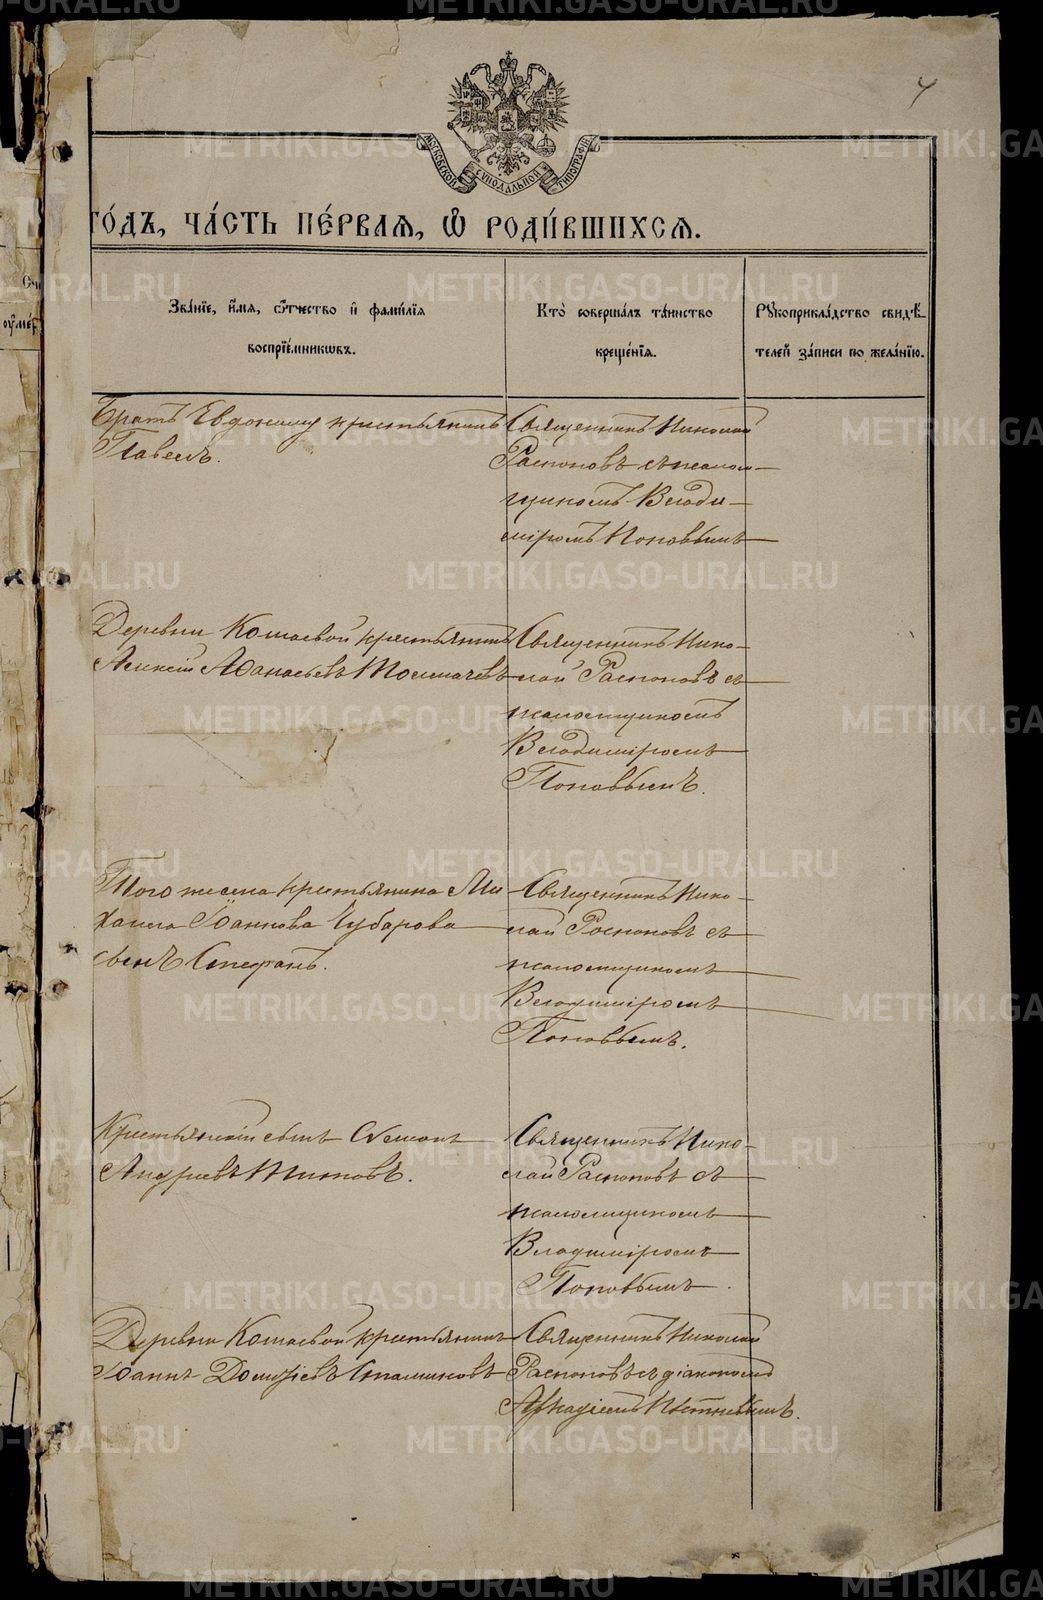 4
МОСКОВСКОЙ СУНОДАЛЬНОЙ ТИПОГРАФІИ
ГО́ДЪ, ЧА́СТЬ ПЕ́РВАЯ, Ѽ РОДИ́ВШИХСЯ.
Зва́нїе, и҆́мя, ѻ҆́тчество и҆ фами́лїя
воспрїе́мникѡвъ.
Кто̀ соверша́лъ та́инство
креще́нїя.
Рꙋкоприкла́дство свидѣ́-
телей за́писи по жела́нїю.
Братъ Евдокиму крестьянинъ
Павелъ.
Священникъ Николай
Распоповъ съ псалом-
щикомъ Влади-
міромъ Поповымъ
Деревни Кошаевой крестьянинъ
Алексій Аѳанасьевъ Толмачевъ
Священникъ Нико-
лай Распоповъ съ
псаломщикомъ
Владиміромъ
Поповымъ.
Того же села крестьянина Ми-
хаила Іоаннова Чубарова
сынъ Стефанъ.
Священникъ Нико-
лай Распоповъ съ
псаломщикомъ
Владиміромъ
Поповымъ.
Крестьянскій сынъ Симонъ
Андреевъ Титовъ.
Священникъ Нико-
лай Распоповъ съ
псаломщикомъ
Владиміромъ
Поповымъ.
Деревни Кошаевой крестьянинъ
Іоаннъ Сташковъ
Священникъ Николай
Распоповъ съ діакономъ
Аркадіемъ
METRIKI.GASO-URAL.RU